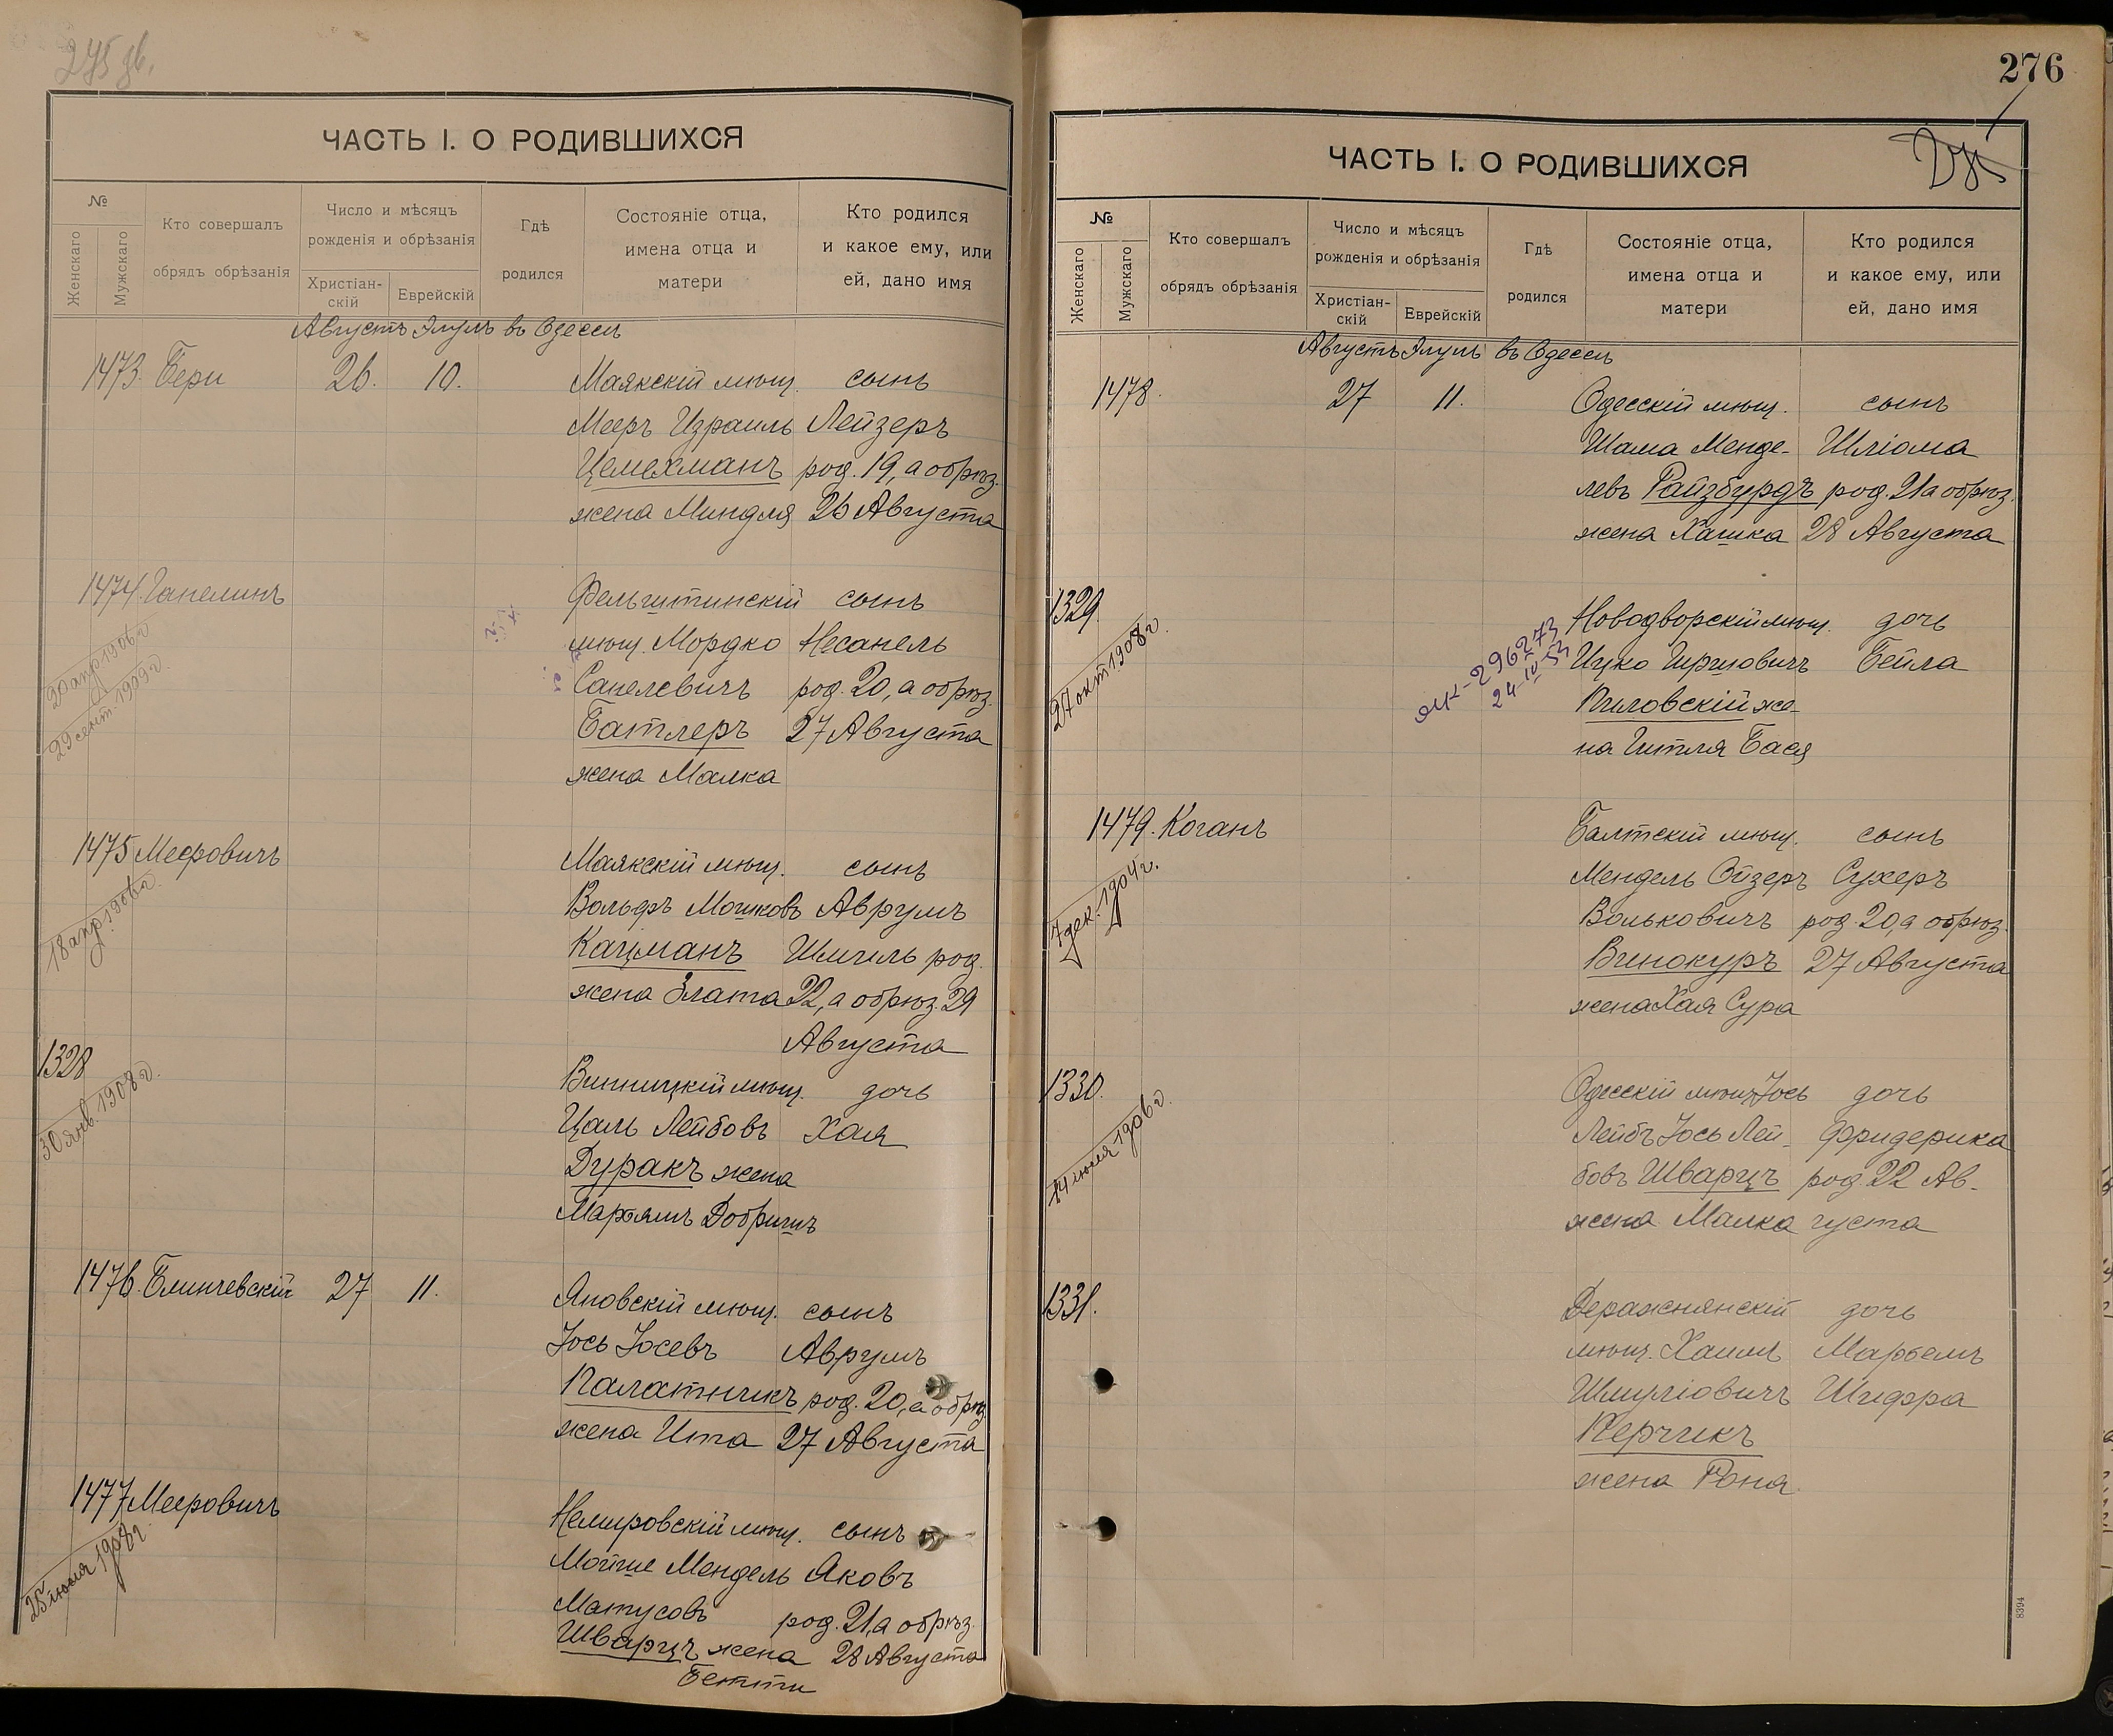 275 об.
ЧАСТЬ I. О РОДИВШИХСЯ
№
Женскаго
Мужскаго
Кто совершалъ
обрядъ обрѣзанія
Число и мѣсяцъ
рожденія и обрѣзанія
Христіан-
скій
Еврейскій
Гдѣ
родился
Состояніе отца,
имена отца и
матери
Кто родился
и какое ему, или
ей, дано имя
Августъ Элулъ въ Одессѣ
1473. Бери 26. 10. Маякскій мѣщ. сынъ
Мееръ Израиль Лейзеръ
Цемехманъ род. 19, а обрѣз.
жена Миндля 26 Августа
1474. Гапелинъ Фельштинскій сынъ
мѣщ. Мордко Несанель
Санелевичъ род. 20, а обрѣз.
Батлеръ 27 Августа
жена Малка
20 апр 1906 г
29 сент. 1909 г.
1475 Мееровичъ Маякскій мѣщ. сынъ
Вольфъ Мошковъ Аврумъ
Кацманъ Шмиль род.
жена Злата 22, а обрѣз. 29
Августа
18 апр. 1906 г.
1328 Винницкій мѣщ. дочь
Цаль Лейбовъ Хая
Дуракъ жена
Марьямъ Добришъ
30 янв. 1908 г.
1476. Блинчевскій 27 11. Яновскій мѣщ. сынъ
Іось Іосевъ Аврумъ
Палатникъ род. 20, а обрѣз.
жена Ита 27 Августа
1477 Мееровичъ Немировскій мѣщ. сынъ
Мойше Мендель Яковъ
Матусовъ род. 21, а обрѣз.
Шварцъ жена 28 Августа
Бетти
25 июля 1908 г.
276
275
ЧАСТЬ I. О РОДИВШИХСЯ
№
Женскаго
Мужскаго
Кто совершалъ
обрядъ обрѣзанія
Число и мѣсяцъ
рожденія и обрѣзанія
Христіан-
скій
Еврейскій
Гдѣ
родился
Состояніе отца,
имена отца и
матери
Кто родился
и какое ему, или
ей, дано имя
Августъ Элулъ въ Одессѣ
1478. 27 11. Одесскій мѣщ. сынъ
Шама Менде- Шліома
левъ Райзбурдъ род. 21 а обрѣз.
жена Хашка 28 Августа
1329. Новодворскій мѣщ. дочь
Ицко Гиршовичъ Бейла
Пиловскій же-
на Гитля Бася
27 окт 1908 г.
ЯЦ-296273
24-IV-53
1479. Коганъ Балтскій мѣщ. сынъ
Мендель Ойзеръ Сухеръ
Вольковичъ род. 20, а обрѣз.
Винокуръ 27 Августа
жена Хая Сура
7 дек. 1904 г.
1330. Одесскій мѣщ. Іось дочь
Лейбъ Іось Лей- Фридерика
бовъ Шварцъ род. 22 Ав-
жена Малка густа
14 июля 1906 г.
1331. Деражнянскій дочь
мѣщ. Хаимъ Марьемъ
Шмуліовичъ Шифра
Керчикъ
жена Роня.
8394